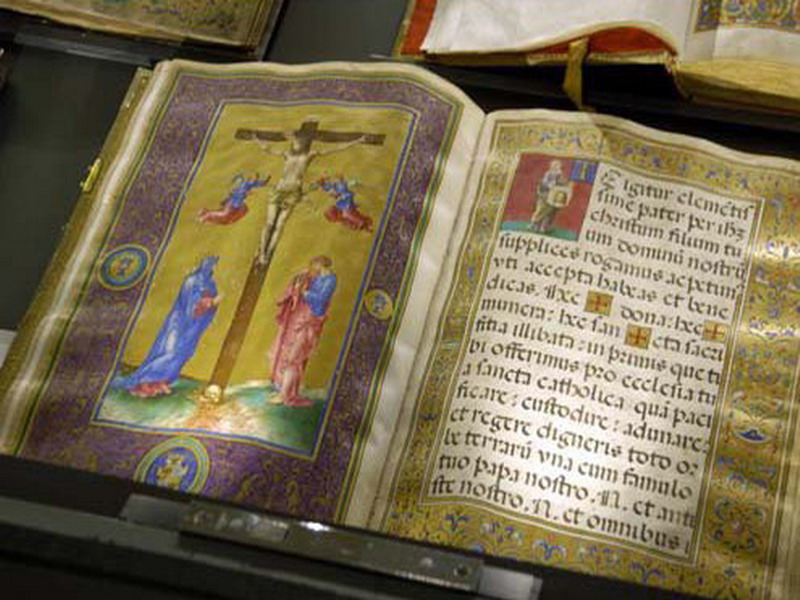 E igitur clemētis
sime pater per ihz
christum filium tu
um dominū nostrū
supplices rogamus ac petim
vti accepta habeas et bene
dicas. Hec ✠ dona: hec ✠
munera: hec san ✠ cta sacri
ficia illibata: in primis que ti
bi offerimus pro ecclesia tu
a sancta catholica quā paci
ficare: custodire: adunare:
et regere digneris toto or
be terrarū vna cum famulo
tuo papa nostro. N. et anti
ste nostro. N. et omnibus